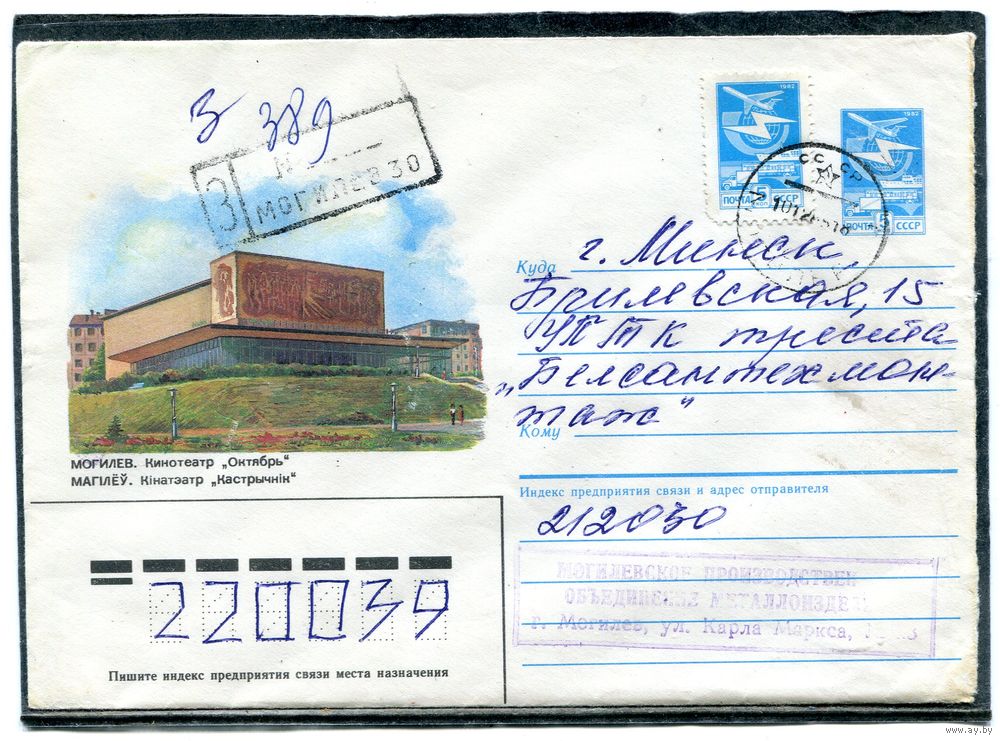 З 389
З
N
МОГИЛЕВ 30
1982
ПОЧТА СССР
5
КОП
1982
ПОЧТА СССР
СССР
Куда г. Минск,
Брилевская, 15
УПТК треста
„Белсантехмон-
таж"
Кому
МОГИЛЕВ. Кинотеатр „Октябрь"
МАГІЛЁЎ. Кінатэатр „Кастрычнік"
Индекс предприятия связи и адрес отправителя
212030
МОГИЛЕВСКОЕ ПРОИЗВОДСТВЕН
ОБЪЕДИНЕНИЕ МЕТАЛЛОИЗДЕЛ
г. Могилев, ул. Карла Маркса,
220039
Пишите индекс предприятия связи места назначения
www.ay.by